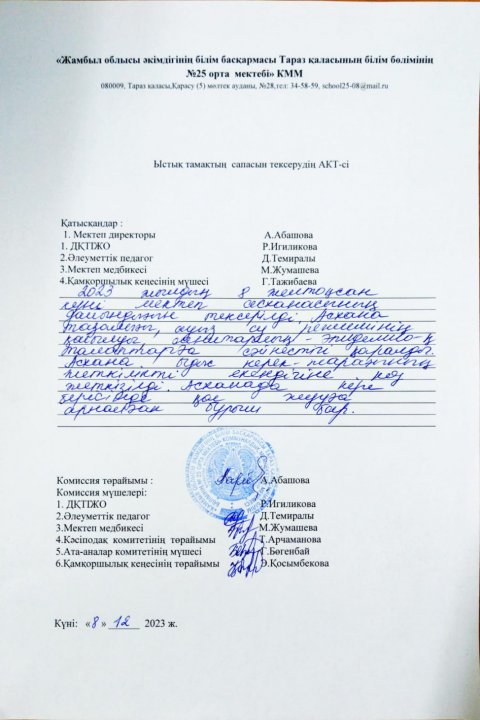 «Жамбыл облысы әкімдігінің білім басқармасы Тараз қаласының білім бөлімінің
№25 орта мектебі» КММ
080009, Тараз қаласы,Қарасу (5) мөлтек ауданы, №28,тел: 34-58-59, school25-08@mail.ru
Ыстық тамақтың сапасын тексерудің АКТ-сі
Қатысқандар :
1. Мектеп директоры А.Абашова
1. ДҚТІЖО Р.Игиликова
2.Әлеуметтік педагог Д.Темиралы
3.Мектеп медбикесі М.Жумашева
4.Қамқоршылық кеңесінің мүшесі Г.Тажибаева
2023 жылдың 8 желтоқсан
күні мектеп асханасының
дайындығын тексерілді. Асхана
тазалығы, ауыз су режимінің
санитарлық - эпидемио-қ
талаптарға сәйкестігі қаралды.
Асхана ыдыс керек-жарағының
жеткілікті екендігіне көз
жеткізілді. Асханада кіре
берісінде қол жууға
арналған бұрыш бар.
Комиссия төрайымы : А.Абашова
Комиссия мүшелері:
1. ДҚТІЖО Р.Игиликова
2.Әлеуметтік педагог Д.Темиралы
3.Мектеп медбикесі М.Жумашева
4.Кәсіподақ комитетінің төрайымы Т.Арчаманова
5.Ата-аналар комитетінің мүшесі Г.Бөгенбай
6.Қамқоршылық кеңесінің төрайымы Э.Қосымбекова
Күні: «8» 12 2023 ж.